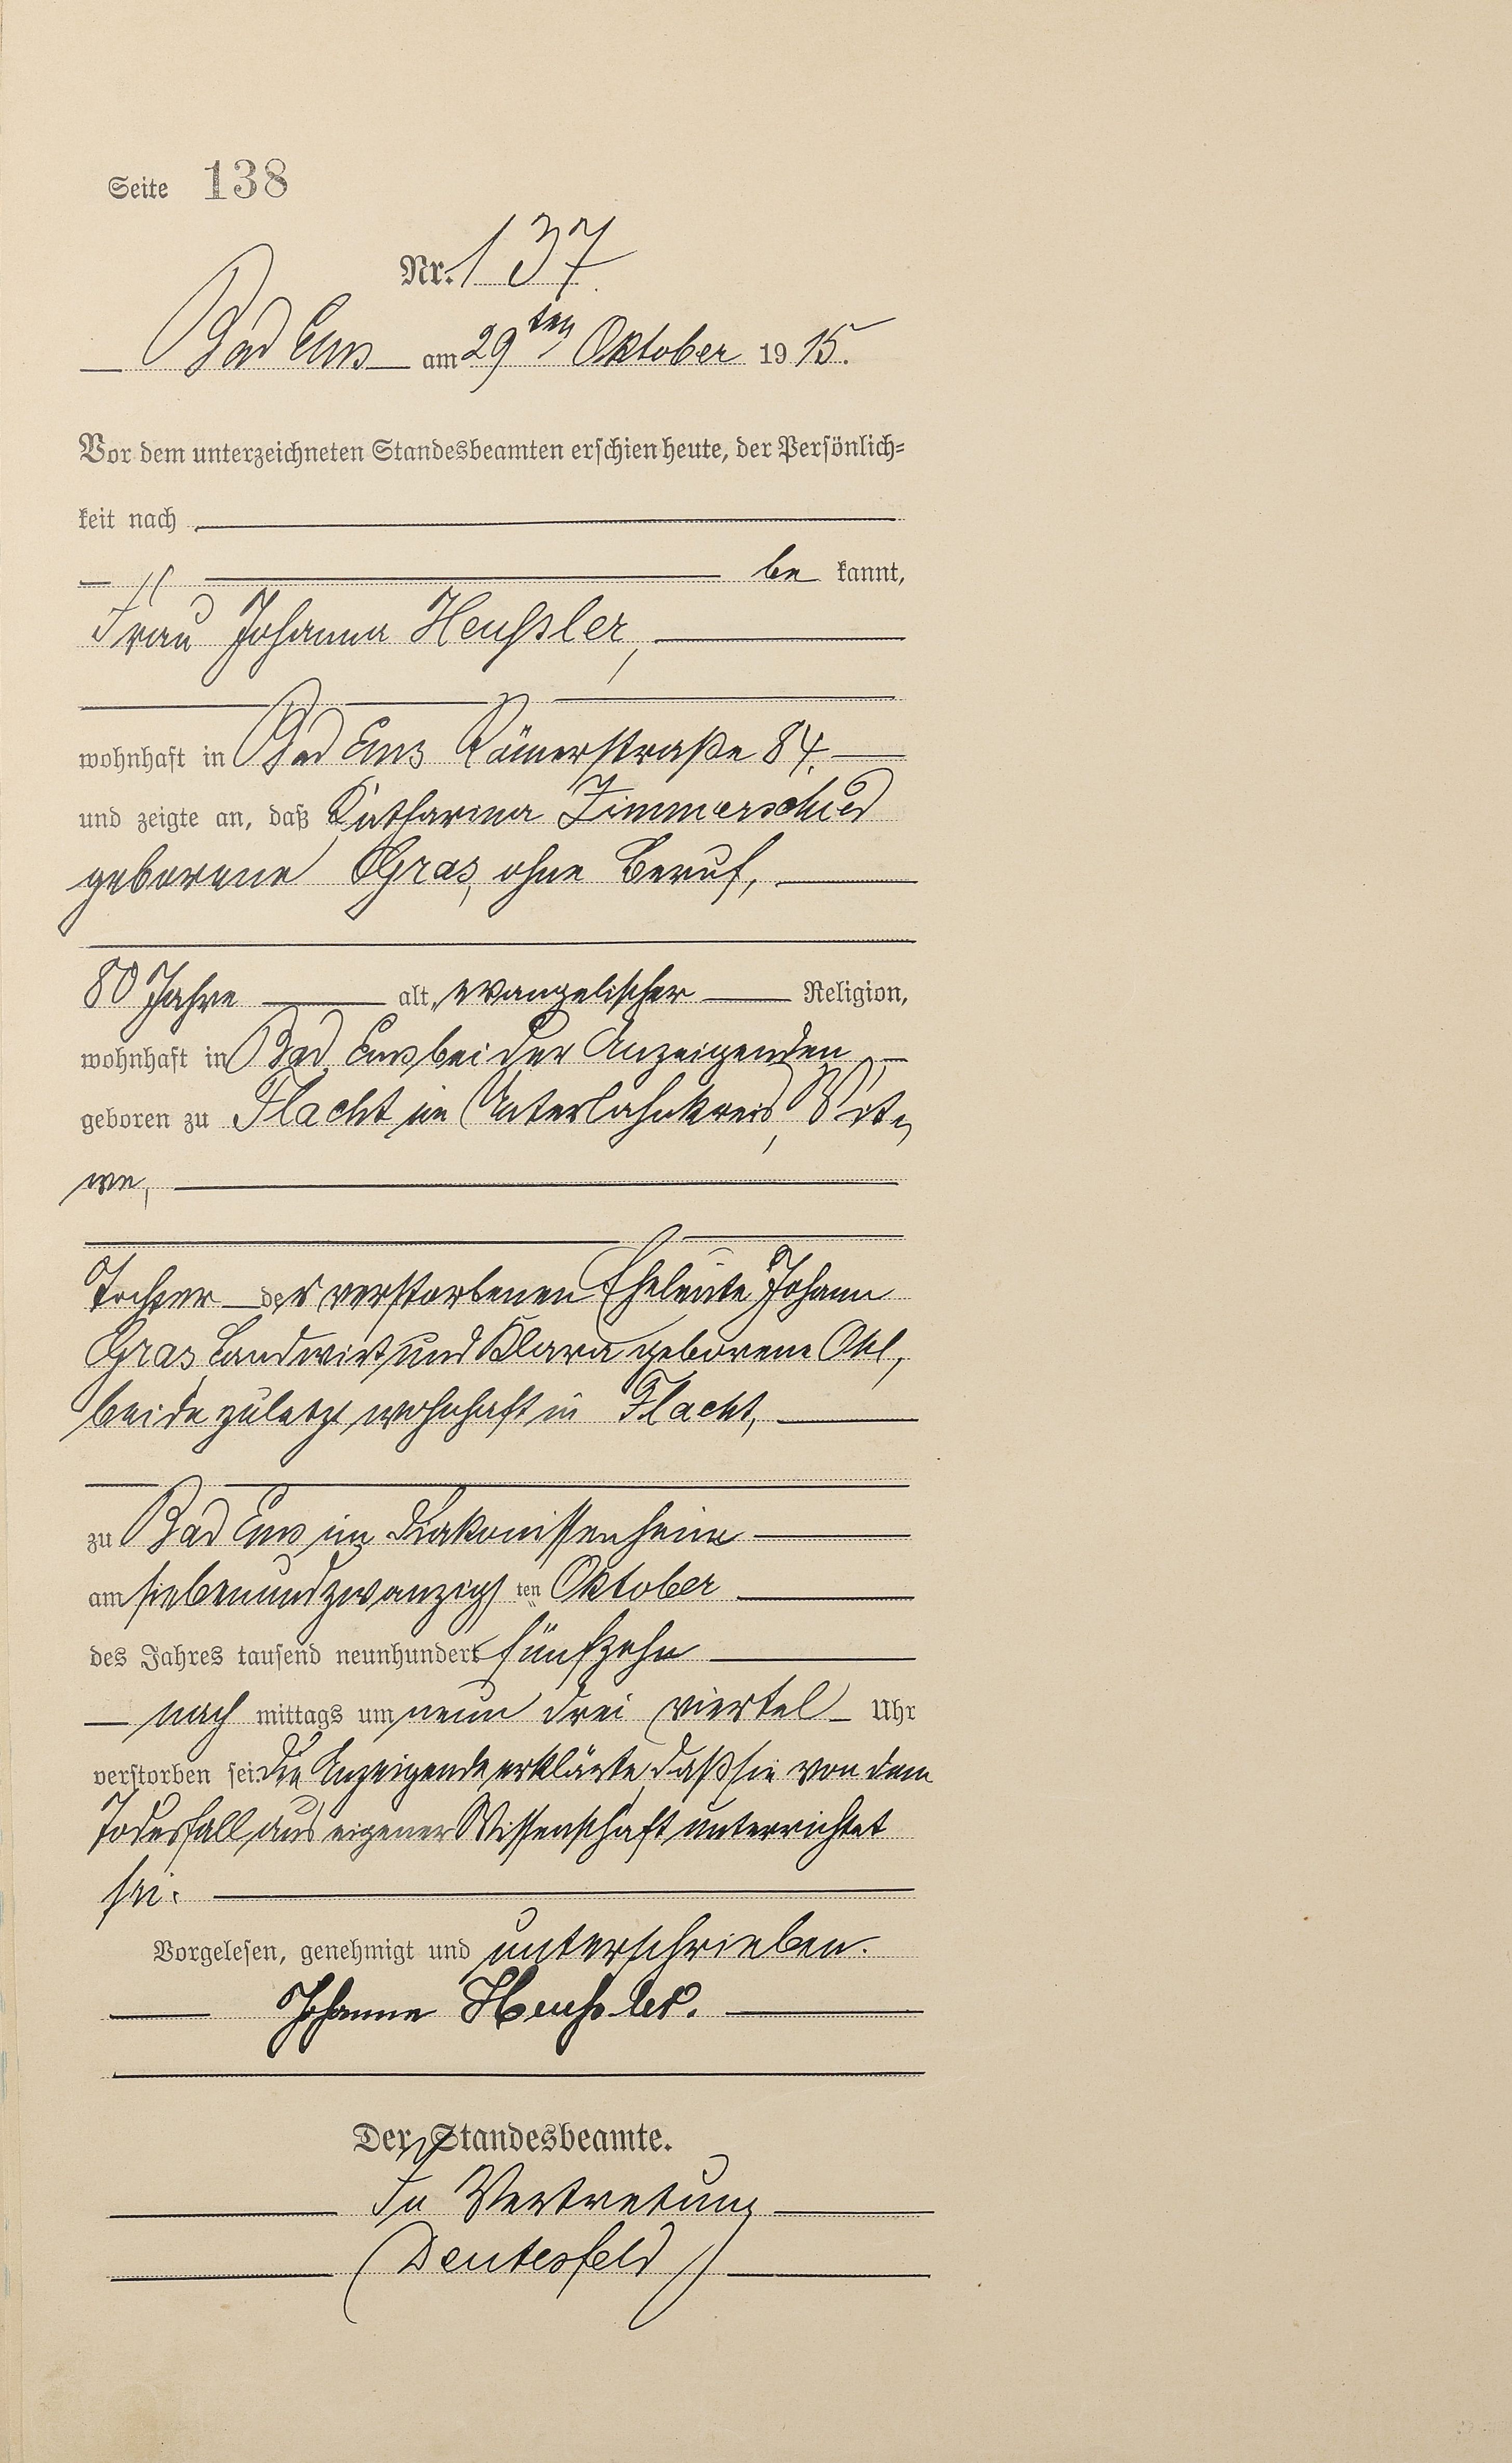 Seite 138
Nr. 137
Bad Ems am 29ten Oktober 1915.
Vor dem unterzeichneten Standesbeamten erschien heute, der Persönlich-
keit nach
be kannt,
Frau Johanna Heußler,
wohnhaft in Bad Ems Römerstraße 84.
und zeigte an, daß Katharina Zimmerschied
geborene Gras, ohne Beruf,
80 Jahre alt, evangelischer Religion,
wohnhaft in Bad Ems bei der Anzeigenden,
geboren zu Flacht im Unterlahnkreis, Wit-
we,
Tochter der verstorbenen Eheleute Johann
Gras, Landwirt und Klara geborene Ohl,
beide zuletzt wohnhaft in Flacht,
zu Bad Ems im Diakonissenheim
am siebenundzwanzigsten Oktober
des Jahres tausend neunhundert fünfzehn
nach mittags um neun drei viertel Uhr
verstorben sei. Die Anzeigende erklärte, daß sie von dem
Todesfall aus eigener Wissenschaft unterrichtet
sei.
Vorgelesen, genehmigt und unterschrieben.
Johanna Heußler.
Der Standesbeamte.
In Vertretung
(Deutesfeld)